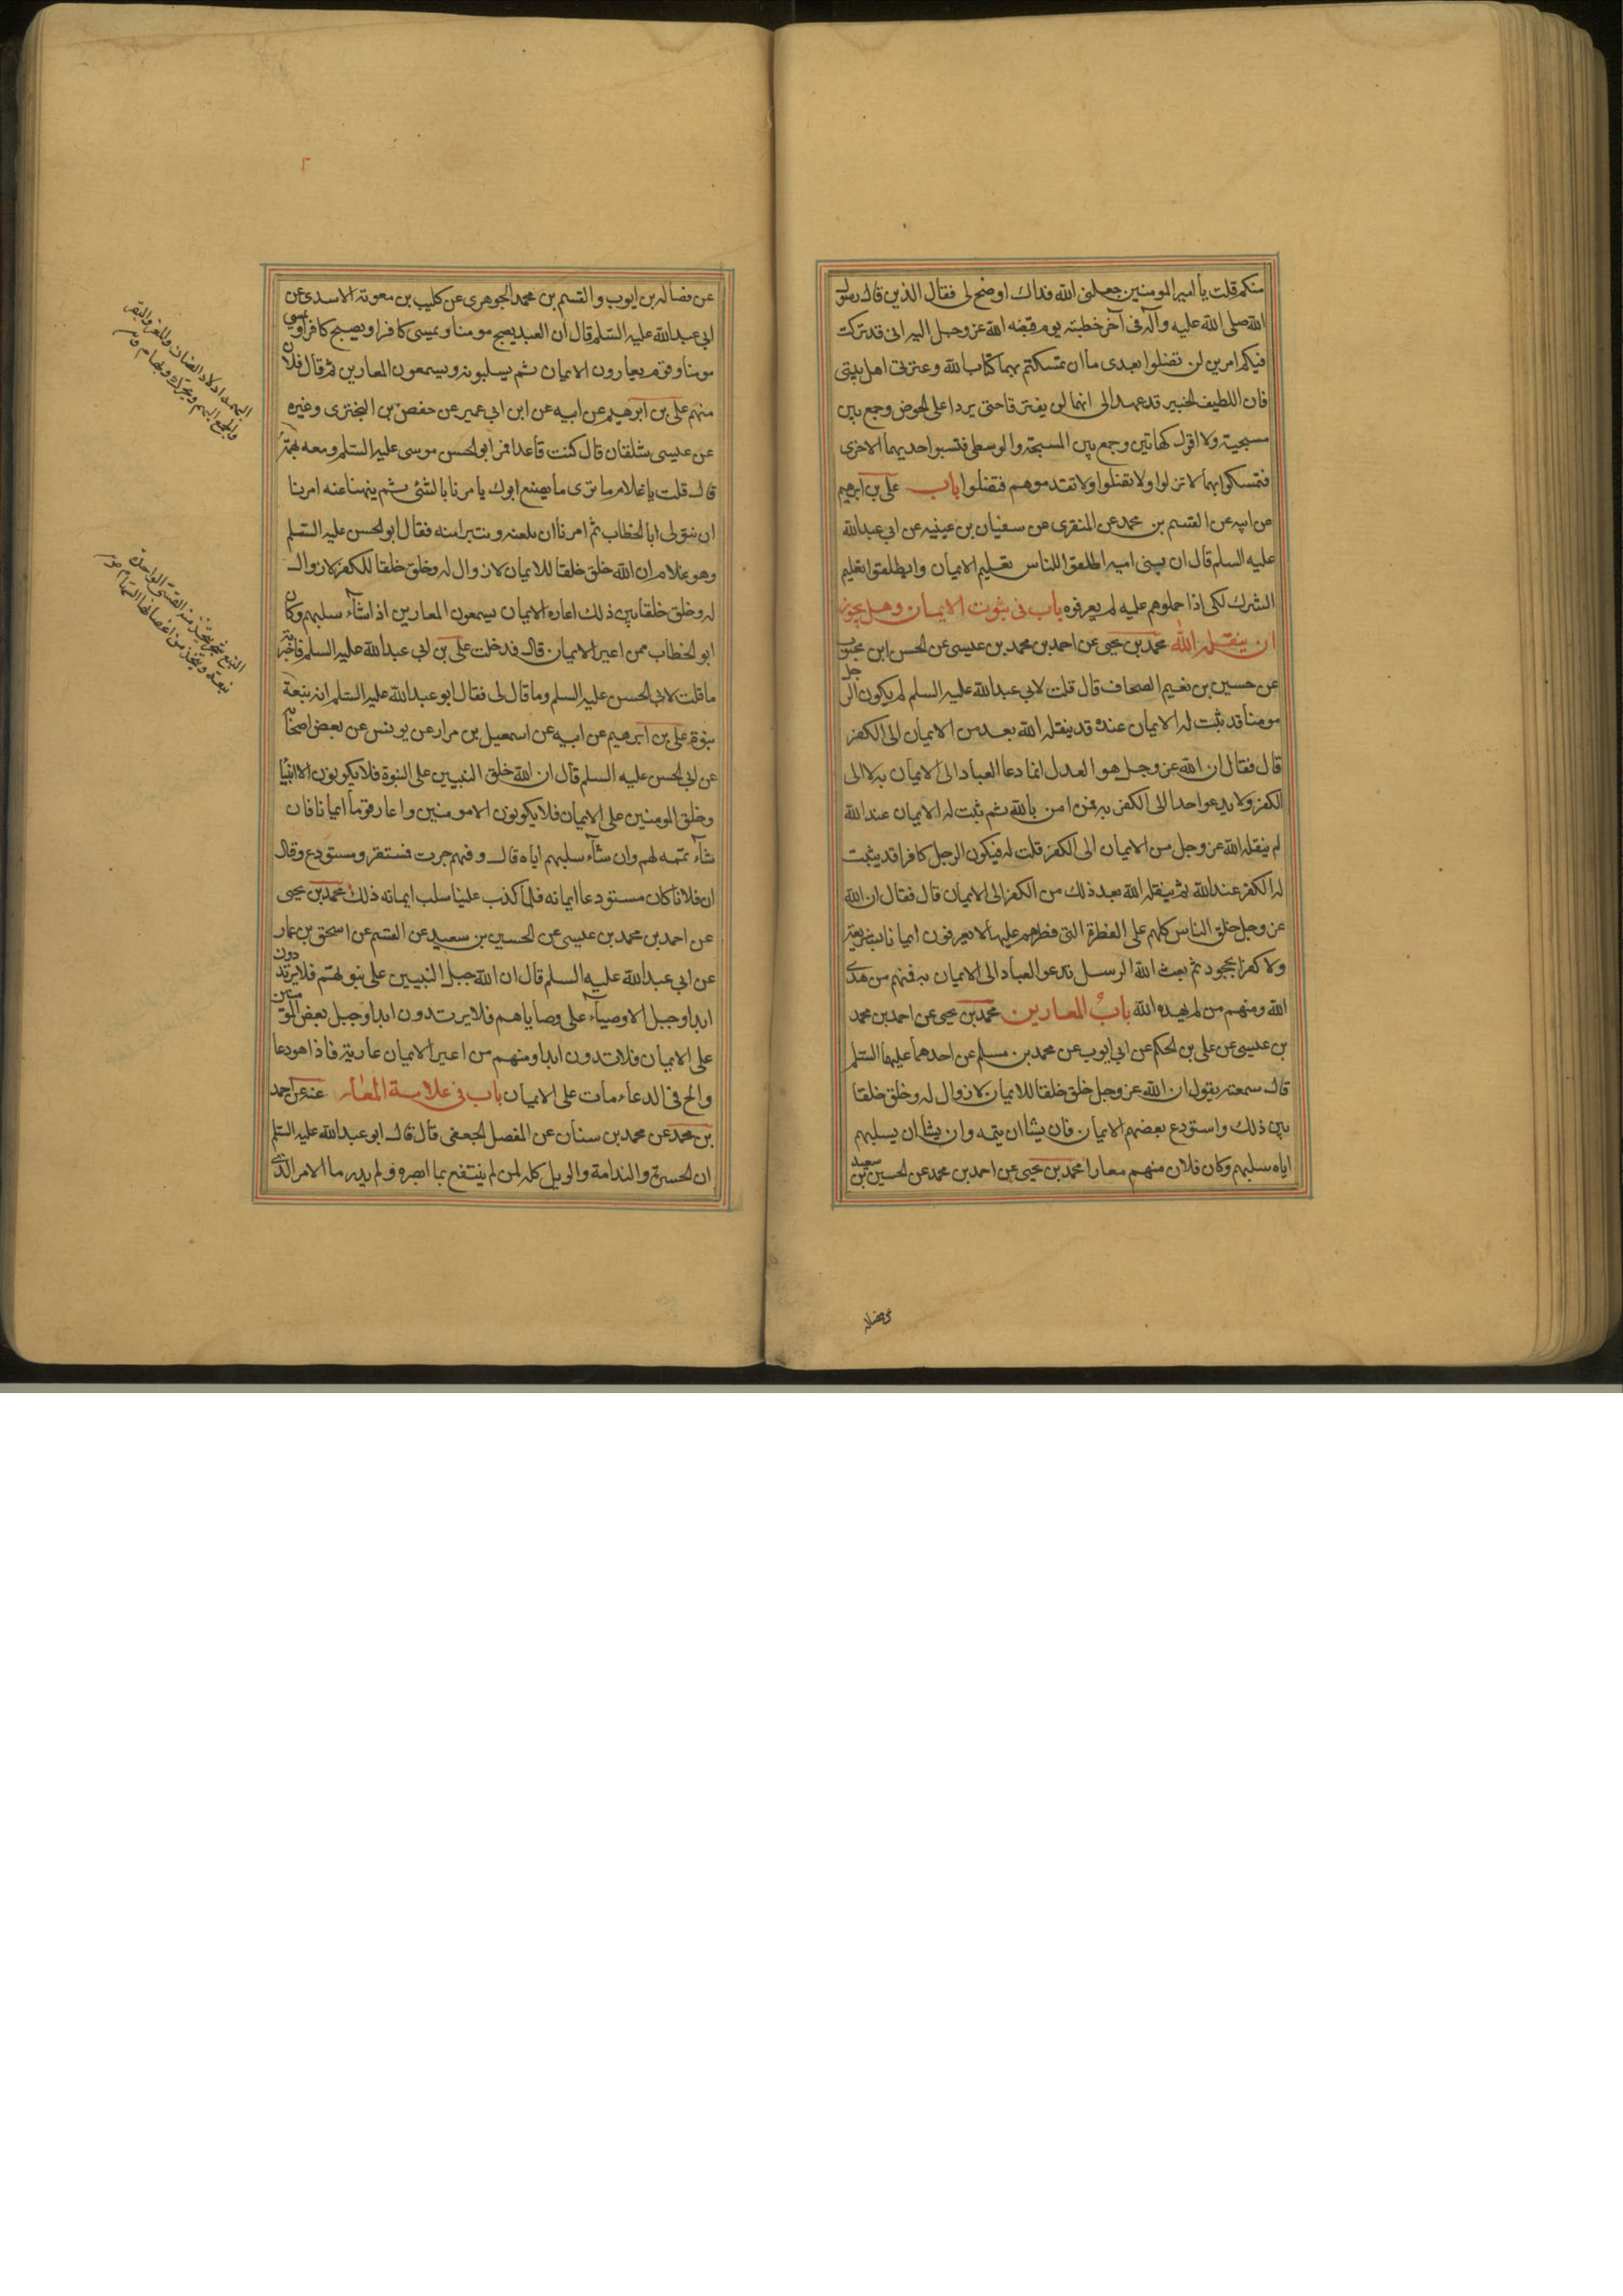 منكم قلت يا أمير المومنين جعلنى الله فداك اوضح لى فقال الذين قال رسول
الله صلى الله عليه وآله فى آخر خطبته يوم قبضه الله عز وجل اليه انى قد تركت
فيكم امرين لن تضلوا بعدى ما ان تمسكتم بهما كتاب الله وعترتى اهل بيتى
فان اللطيف الخبير قد عهد الى انهما لن يفترقا حتى يردا على الحوض وجمع بين
مسبحتيه ولا اقول كهاتين وجمع بين المسبحة والوسطى فتسبق احديهما الاخرى
فتمسكوا بهما لا تزلوا ولا تضلوا ولا تقدموهم فتضلوا باب على بن ابرهيم
عن ابيه عن القسم بن محمد عن المنقرى عن سفيان بن عيينه عن ابى عبد الله
عليه السلم قال ان بنى اميه اطلقوا للناس تعليم الايمان ولم يطلقوا تعليم
الشرك لكى اذا حملوهم عليه لم يعرفوه باب فى ثبوت الايمان وهل يجوز
ان ينقله الله محمد بن يحيى عن احمد بن محمد بن عيسى عن الحسن ابن محبوب
عن حسين بن نعيم الصحاف قال قلت لابى عبد الله عليه السلم لم يكون الرجل
مومنا قد ثبت له الايمان عنده قد ينقله الله بعد من الايمان الى الكفر
قال فقال ان الله عز وجل هو العدل انما دعا العباد الى الايمان به لا الى
الكفر ولا يدعو احدا الى الكفر به فمن امن بالله ثم ثبت له الايمان عند الله
لم ينقله الله عز وجل من الايمان الى الكفر قلت له فيكون الرجل كافرا قد يثبت
له الكفر عند الله ثم ينقله الله بعد ذلك من الكفر الى الايمان قال فقال ان الله
عز وجل خلق الناس كلهم على الفطرة التى فطرهم عليها لا يعرفون ايمانا بشريعة
ولا كفرا بجحود ثم بعث الله الرسل تدعو العباد الى الايمان به فمنهم من هدى
الله ومنهم من لم يهده الله باب المعارين محمد بن يحيى عن احمد بن محمد
بن عيسى عن على بن الحكم عن ابى ايوب عن محمد بن مسلم عن احدهما عليهما السلم
قال سمعته يقول ان الله عز وجل خلق خلقا للايمان لا زوال له وخلق خلقا
بين ذلك واستودع بعضهم الايمان فان يشا ان يتمه وان يشا ان يسلبهم
اياه سلبهم وكان فلان منهم معارا محمد بن يحيى عن احمد بن محمد عن الحسين بن سعيد
عن فضاله
عن فضاله بن ايوب والقسم بن محمد الجوهرى عن كليب بن معوية الاسدى عن
ابى عبد الله عليه السلم قال ان العبد يصبح مومنا ويمسى كافرا ويصبح كافرا ويمسى
مومنا وقوم يعارون الايمان ثم يسلبونه ويسمعون المعارين ثم قال فلان
منهم على بن ابرهيم عن ابيه عن ابن ابى عمير عن حفص بن البخترى وغيره
عن عيسى شلقان قال كنت قاعدا فمر ابو الحسن موسى عليه السلم ومعه بهمة
قال قلت يا غلام ما ترى ما يصنع ابوك يامرنا بالشئ ثم ينهنا عنه امرنا
ان نتولى ابا الخطاب ثم امرنا ان نلعنه ونتبرا منه فقال ابو الحسن عليه السلم
وهو غلام ان الله خلق خلقا للايمان لا زوال له وخلق خلقا للكفر لا زوال
له وخلق خلقا بين ذلك اعاره الايمان يسمعون المعارين اذا شاء سلبهم وكان
ابو الخطاب ممن اعير الايمان قال فدخلت على بن ابى عبد الله عليه السلم فاخبرته
ما قلت لابى الحسن عليه السلم وما قال لى فقال ابو عبد الله عليه السلم انه نبعة
نبوة على بن ابرهيم عن ابيه عن اسمعيل بن مرار عن يونس عن بعض اصحابه
عن ابى الحسن عليه السلم قال ان الله خلق النبيين على النبوة فلا يكونون الا انبيا
وخلق المومنين على الايمان فلا يكونون الا مومنين واعار قوما ايمانا فان
شاء تممه لهم وان شاء سلبهم اياه قال وفيهم جرت فمستقر ومستودع وقال
ان فلانا كان مستودعا ايمانه فلما كذب علينا سلب ايمانه ذلك محمد بن يحيى
عن احمد بن محمد بن عيسى عن الحسين بن سعيد عن القسم عن اسحق بن عمار
عن ابى عبد الله عليه السلم قال ان الله جبل النبيين على نبوتهم فلا يرتدون
ابدا وجبل الاوصياء على وصاياهم فلا يرتدون ابدا وجبل بعض المومنين
على الايمان فلا يرتدون ابدا ومنهم من اعير الايمان عارية فاذا هو دعا
والح فى الدعاء مات على الايمان باب فى علامة المعار عنه عن احمد
بن محمد عن محمد بن سنان عن المفضل الجعفى قال قال ابو عبد الله عليه السلم
ان الحسرة والندامة والويل كله لمن لم ينتفع بما ابصره ولم يدر ما الامر الذى
البهمة اولاد الضان والمعز والبقر
النبع شجر يتخذ منه القسى الواحدة
نبعة ويتخذ من اغصانها السهام